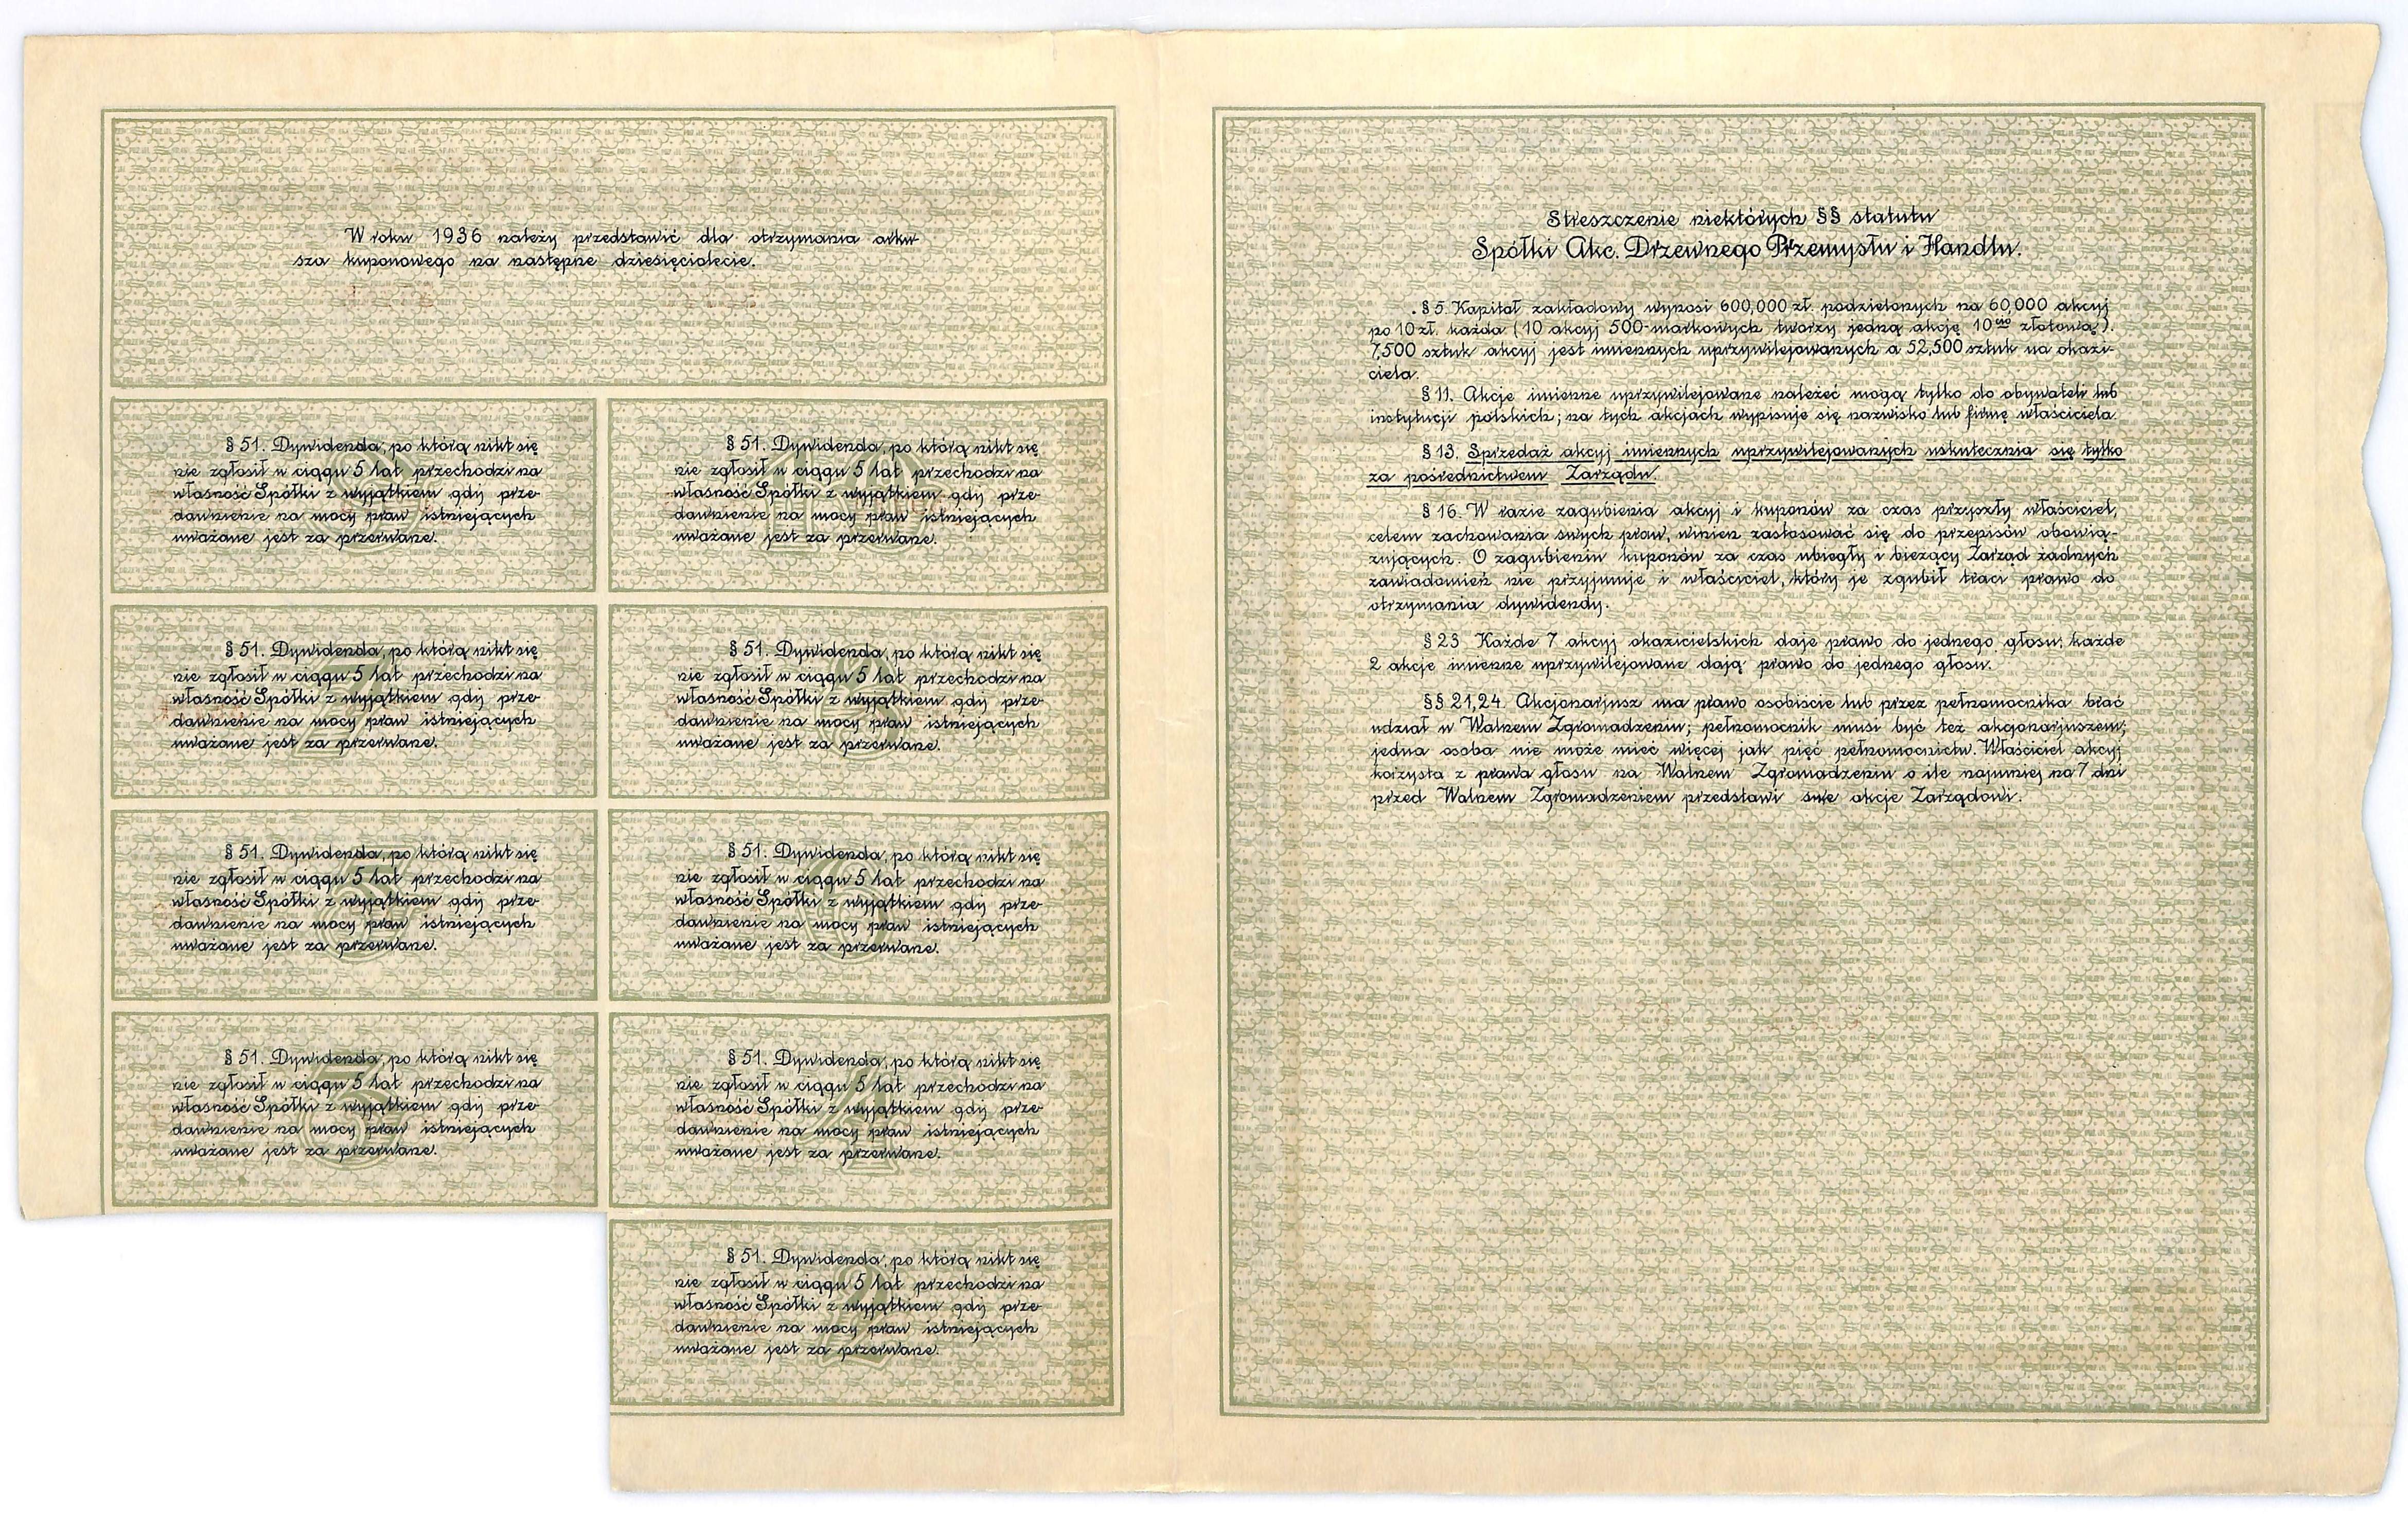 W roku 1936 należy przedstawić dla otrzymania arku-
sza kuponowego na następne dziesięciolecie.
§ 51. Dywidenda, po którą nikt się
nie zgłosił w ciągu 5 lat przechodzi na
własność Spółki z wyjątkiem gdy prze-
dawnienie na mocy praw istniejących
uważane jest za przerwane.
§ 51. Dywidenda, po którą nikt się
nie zgłosił w ciągu 5 lat przechodzi na
własność Spółki z wyjątkiem gdy prze-
dawnienie na mocy praw istniejących
uważane jest za przerwane.
§ 51. Dywidenda, po którą nikt się
nie zgłosił w ciągu 5 lat przechodzi na
własność Spółki z wyjątkiem gdy prze-
dawnienie na mocy praw istniejących
uważane jest za przerwane.
§ 51. Dywidenda, po którą nikt się
nie zgłosił w ciągu 5 lat przechodzi na
własność Spółki z wyjątkiem gdy prze-
dawnienie na mocy praw istniejących
uważane jest za przerwane.
§ 51. Dywidenda, po którą nikt się
nie zgłosił w ciągu 5 lat przechodzi na
własność Spółki z wyjątkiem gdy prze-
dawnienie na mocy praw istniejących
uważane jest za przerwane.
§ 51. Dywidenda, po którą nikt się
nie zgłosił w ciągu 5 lat przechodzi na
własność Spółki z wyjątkiem gdy prze-
dawnienie na mocy praw istniejących
uważane jest za przerwane.
§ 51. Dywidenda, po którą nikt się
nie zgłosił w ciągu 5 lat przechodzi na
własność Spółki z wyjątkiem gdy prze-
dawnienie na mocy praw istniejących
uważane jest za przerwane.
§ 51. Dywidenda, po którą nikt się
nie zgłosił w ciągu 5 lat przechodzi na
własność Spółki z wyjątkiem gdy prze-
dawnienie na mocy praw istniejących
uważane jest za przerwane.
§ 51. Dywidenda, po którą nikt się
nie zgłosił w ciągu 5 lat przechodzi na
własność Spółki z wyjątkiem gdy prze-
dawnienie na mocy praw istniejących
uważane jest za przerwane.
Streszczenie niektórych §§ statutu
Spółki Akc. Drzewnego Przemysłu i Handlu.
§ 5. Kapitał zakładowy wynosi 600,000 zł. podzielonych na 60,000 akcyj
po 10 zł. każda (10 akcyj 500-markowych tworzy jedną akcję 10cio złotową).
7,500 sztuk akcyj jest imiennych uprzywilejowanych a 52,500 sztuk na okazi-
ciela.
§ 11. Akcje imienne uprzywilejowane należeć mogą tylko do obywateli lub
instytucji polskich; na tych akcjach wypisuje się nazwisko lub firmę właściciela.
§ 13. Sprzedaż akcyj imiennych uprzywilejowanych uskutecznia się tylko
za pośrednictwem Zarządu.
§ 16. W razie zagubienia akcyj i kuponów za czas przyszły właściciel,
celem zachowania swych praw, winien zastosować się do przepisów obowią-
zujących. O zagubieniu kuponów za czas ubiegły i bieżący Zarząd żadnych
zawiadomień nie przyjmuje i właściciel, który je zgubił traci prawo do
otrzymania dywidendy.
§ 23 Każde 7 akcyj okazicielskich daje prawo do jednego głosu; każde
2 akcje imienne uprzywilejowane dają prawo do jednego głosu.
§§ 21,24. Akcjonarjusz ma prawo osobiście lub przez pełnomocnika brać
udział w Walnem Zgromadzeniu; pełnomocnik musi być też akcjonarjuszem;
jedna osoba nie może mieć więcej jak pięć pełnomocnictw. Właściciel akcyj
korzysta z prawa głosu na Walnem Zgromadzeniu o ile najmniej na 7 dni
przed Walnem Zgromadzeniem przedstawi swe akcje Zarządowi.